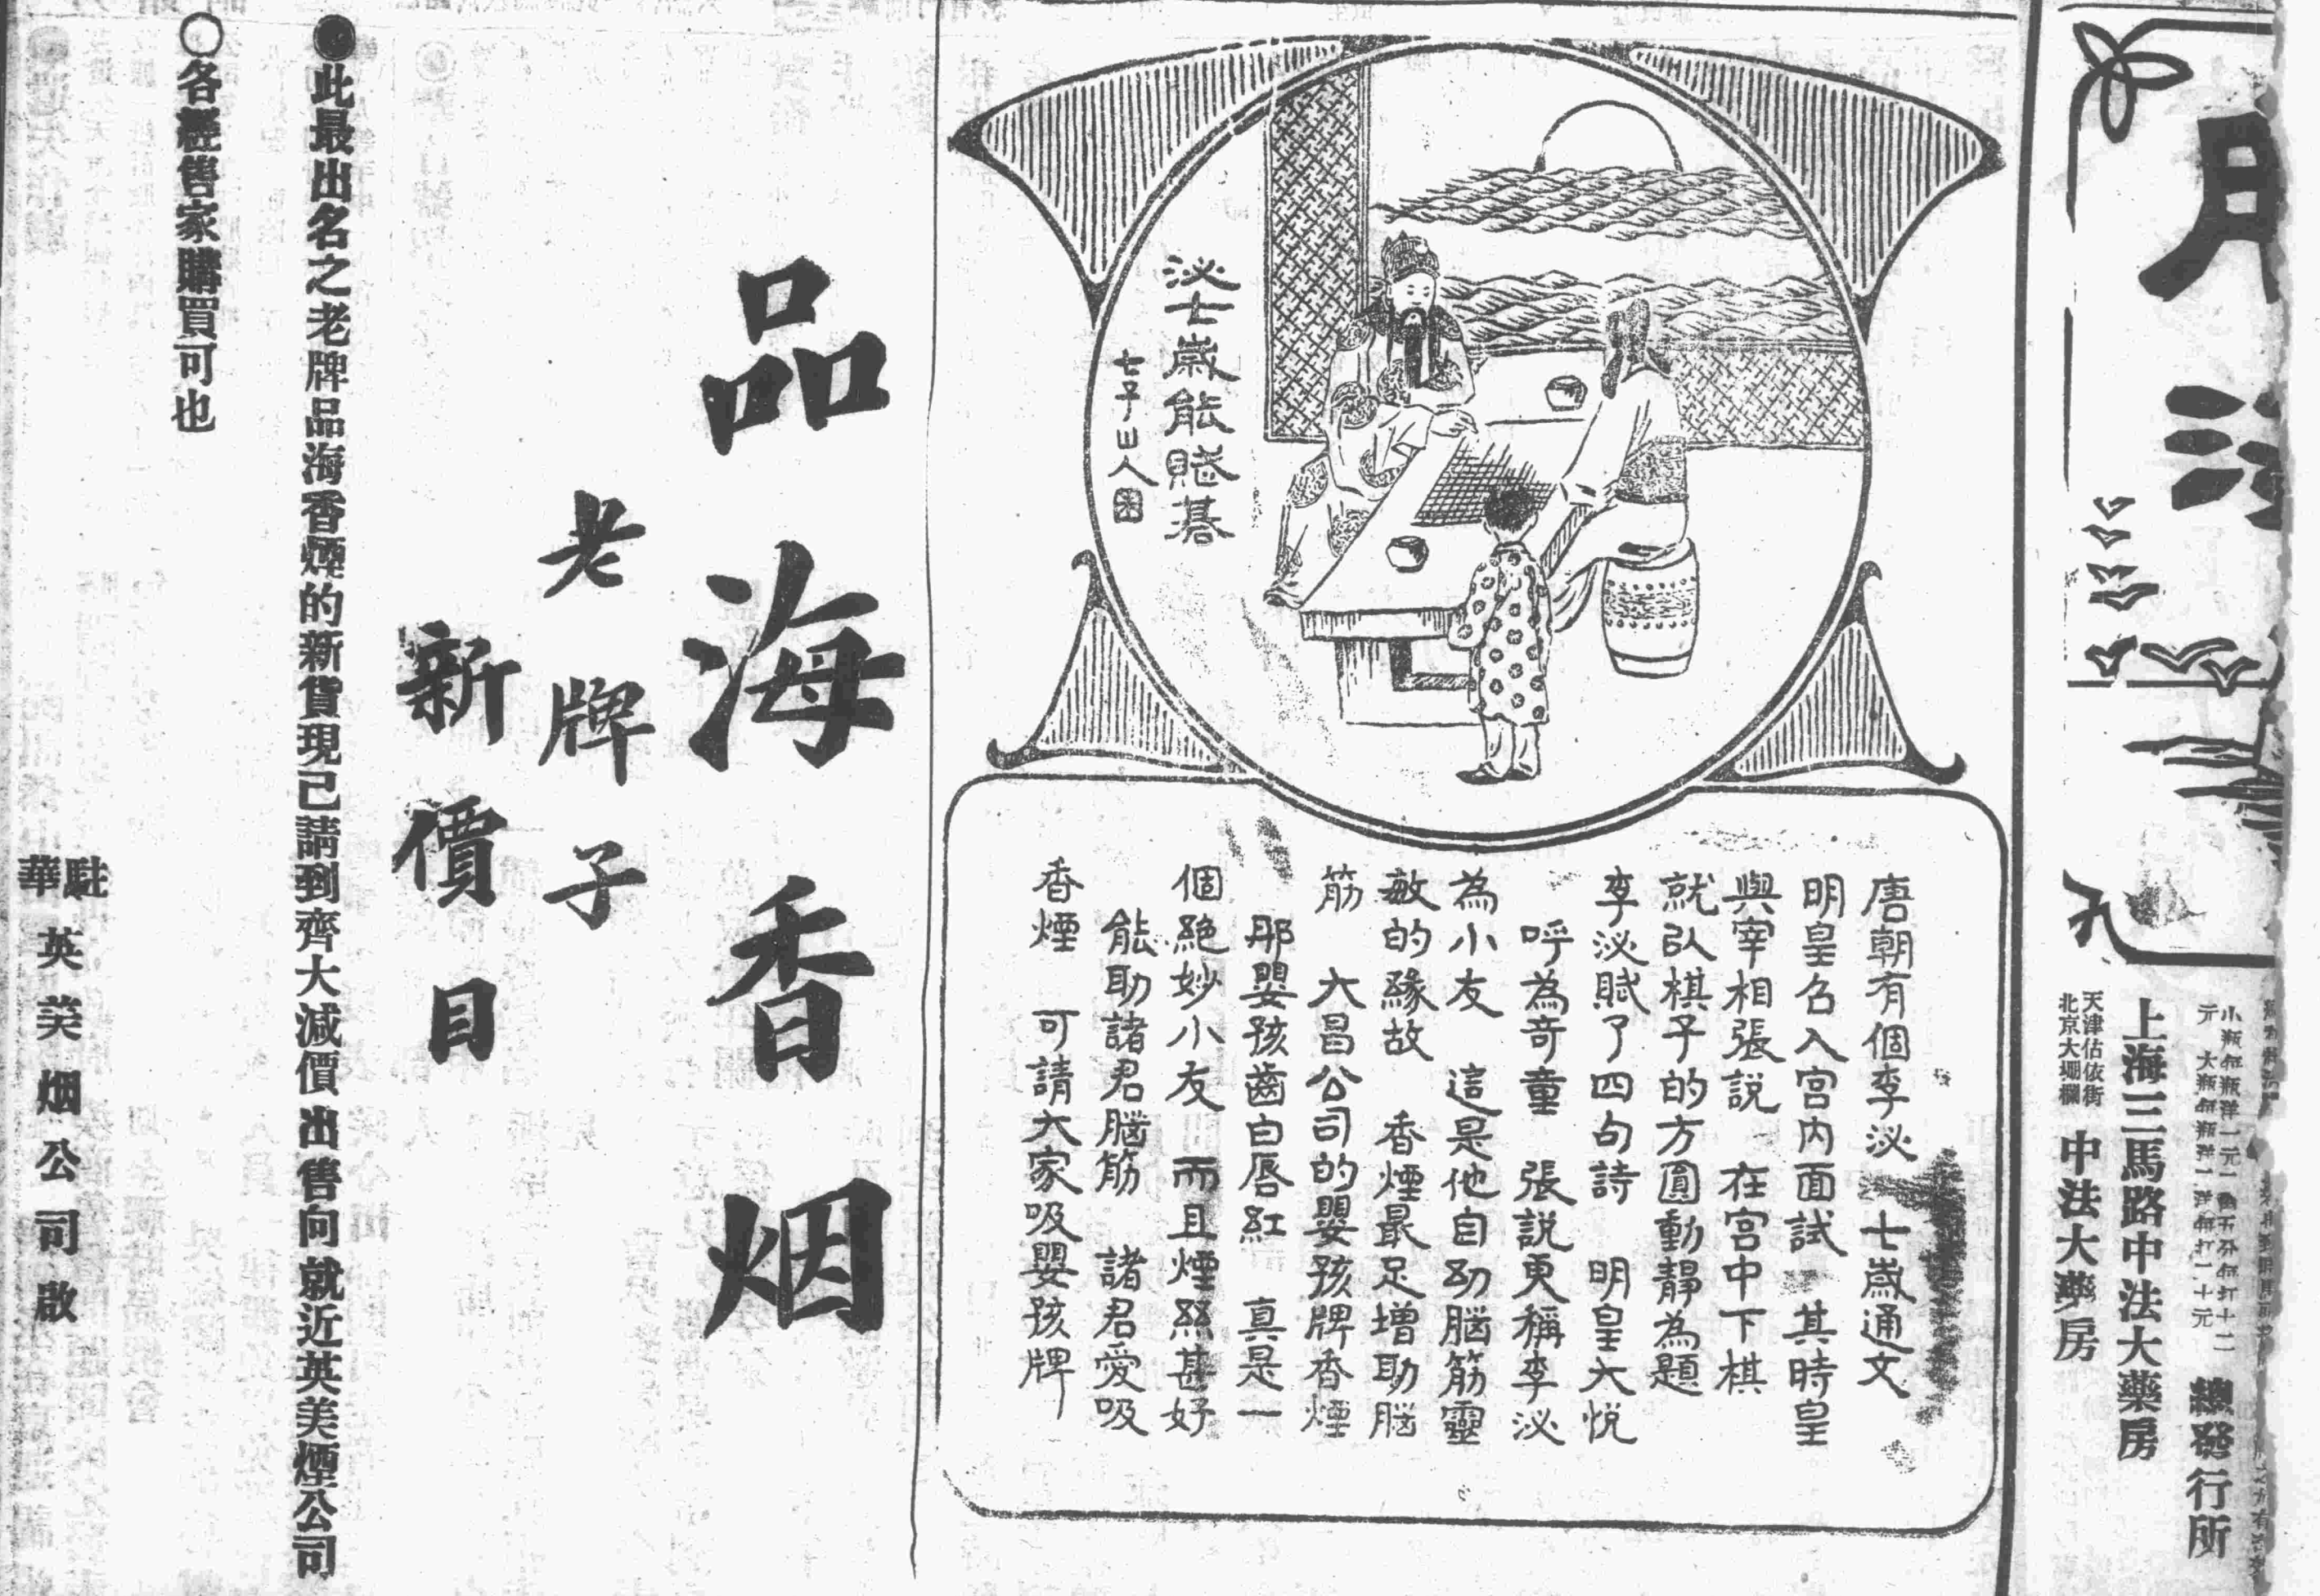 總發行所
上海三馬路中法大藥房
天津估依街
北京大堋欄
中法大藥房
泌七歲能賦碁
唐朝有個李泌 七歲通文
明皇召入宮內面試 其時皇
與宰相張説 在宮中下棋
就以棋子的方圓動靜為題
李泌賦了四句詩 明皇大悦
呼為奇童 張説更稱李泌
為小友 這是他自幼腦筋靈
敏的緣故 香煙最足增助腦
筋 大昌公司的嬰孩牌香煙
那嬰孩齒白唇紅 真是一
個絶妙小友 而且煙絲甚好
能助諸君腦筋 諸君愛吸
香煙 可請大家吸嬰孩牌
品海香烟
老牌子
新價目
●此最出名之老牌品海香煙的新貨現已請到齊大減價出售向就近英美煙公司
○各經售家購買可也
駐華英美烟公司啟